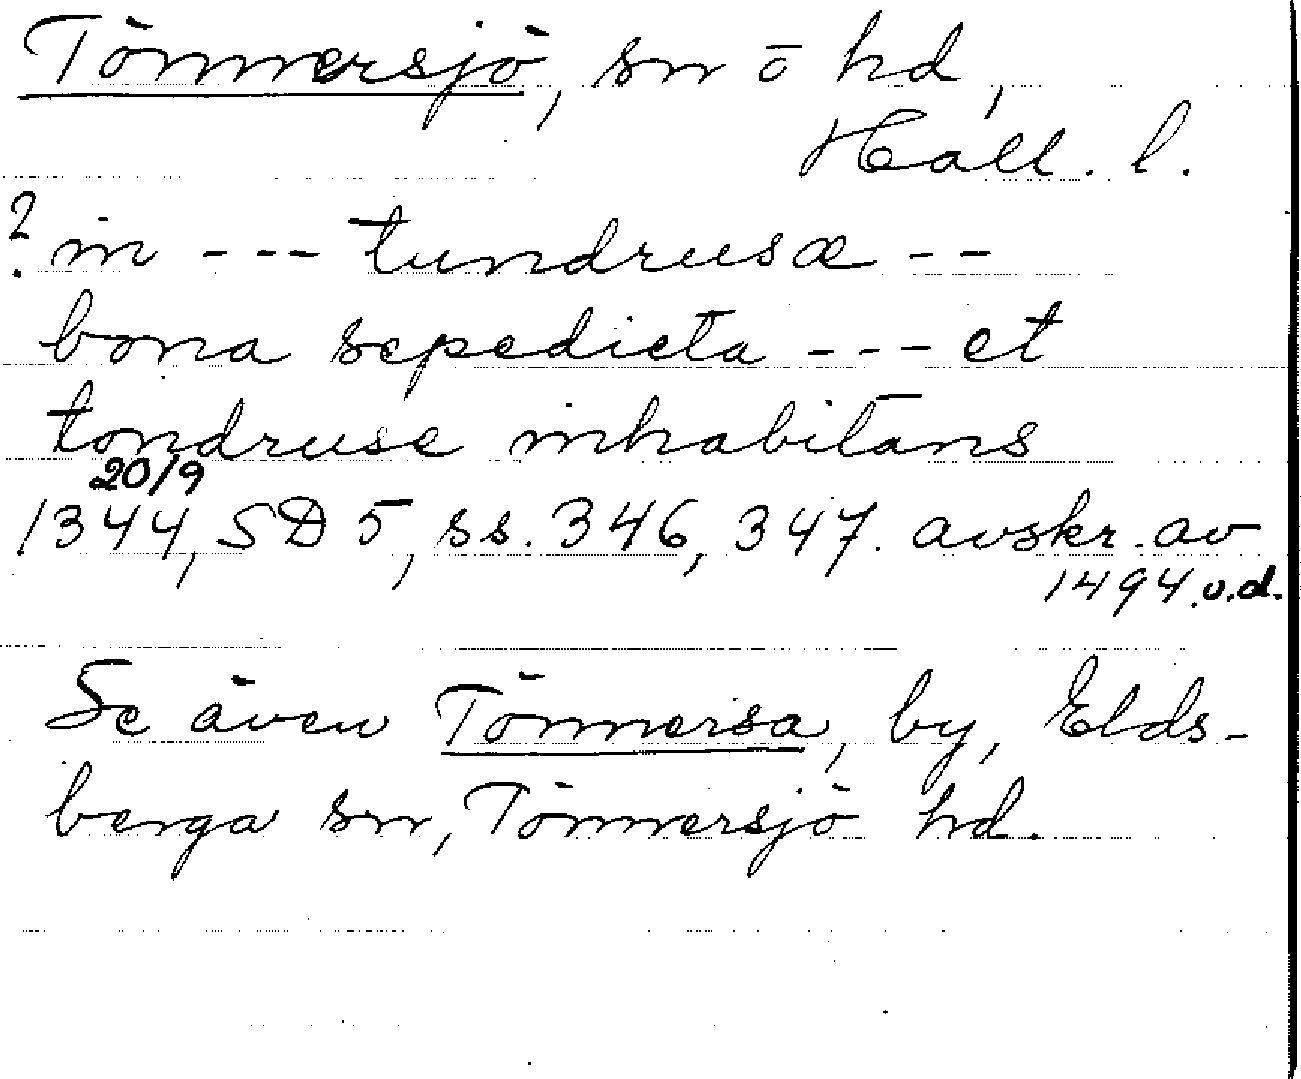 Tönnersjö, sn ō hd,
Hall. l.
? in --- tundrusæ --
bona sepedicta --- et
tondruse inhabitans
20/9
1344, SD 5, ss. 346, 347. avskr. av
1494.o.d.
Se även Tönnersa, by, Elds-
berga sn, Tönnersjö hd.